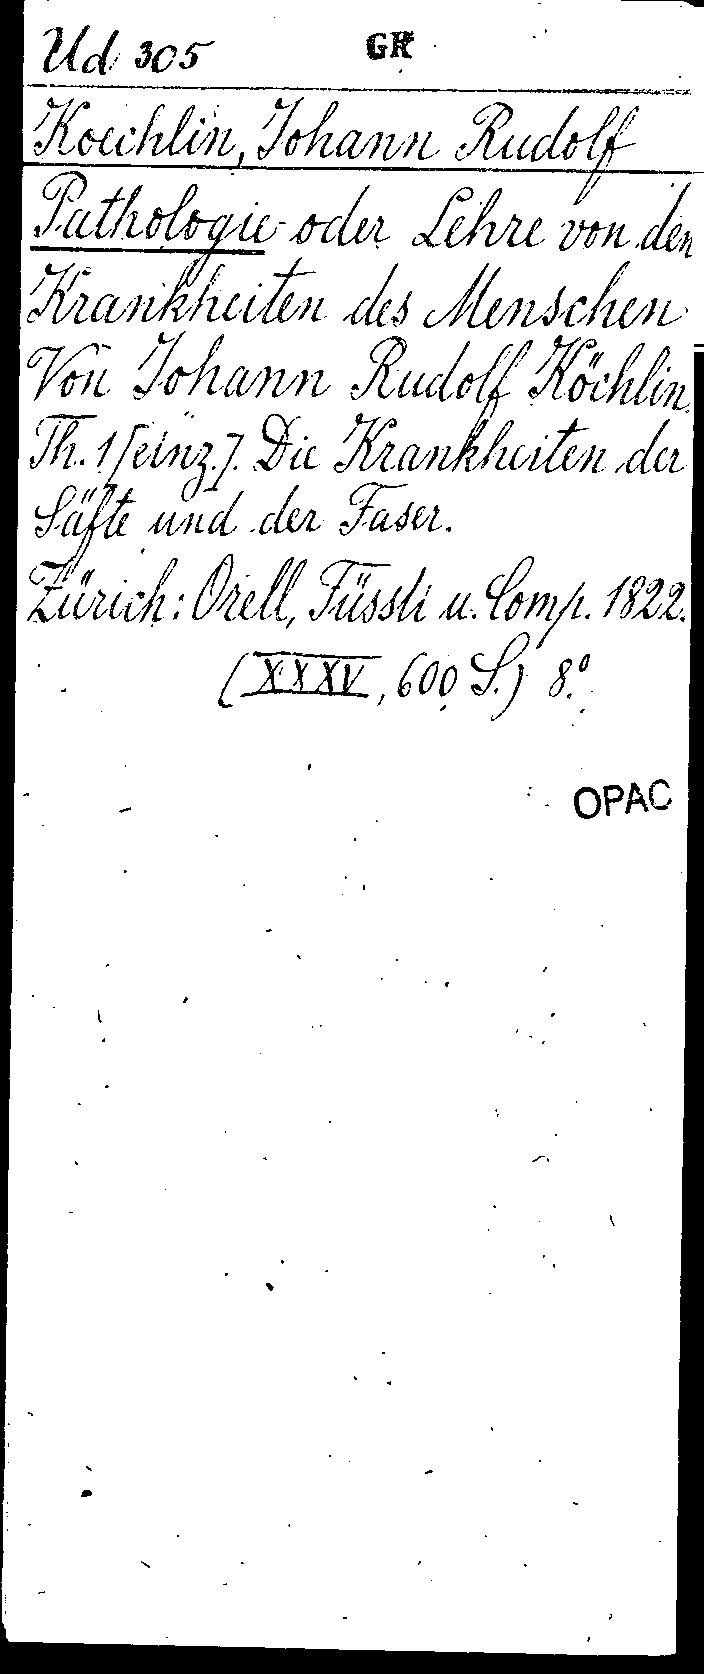 Ud 305 GR
Koechlin, Johann Rudolf
Pathologie oder Lehre von den
Krankheiten des Menschen
Von Johann Rudolf Köchlin.
Th. 1 [einz.]. Die Krankheiten der
Säfte und der Faser.
Zürich: Orell, Füssli u. Comp. 1822.
(XXXV, 600 S.) 8°.
OPAC